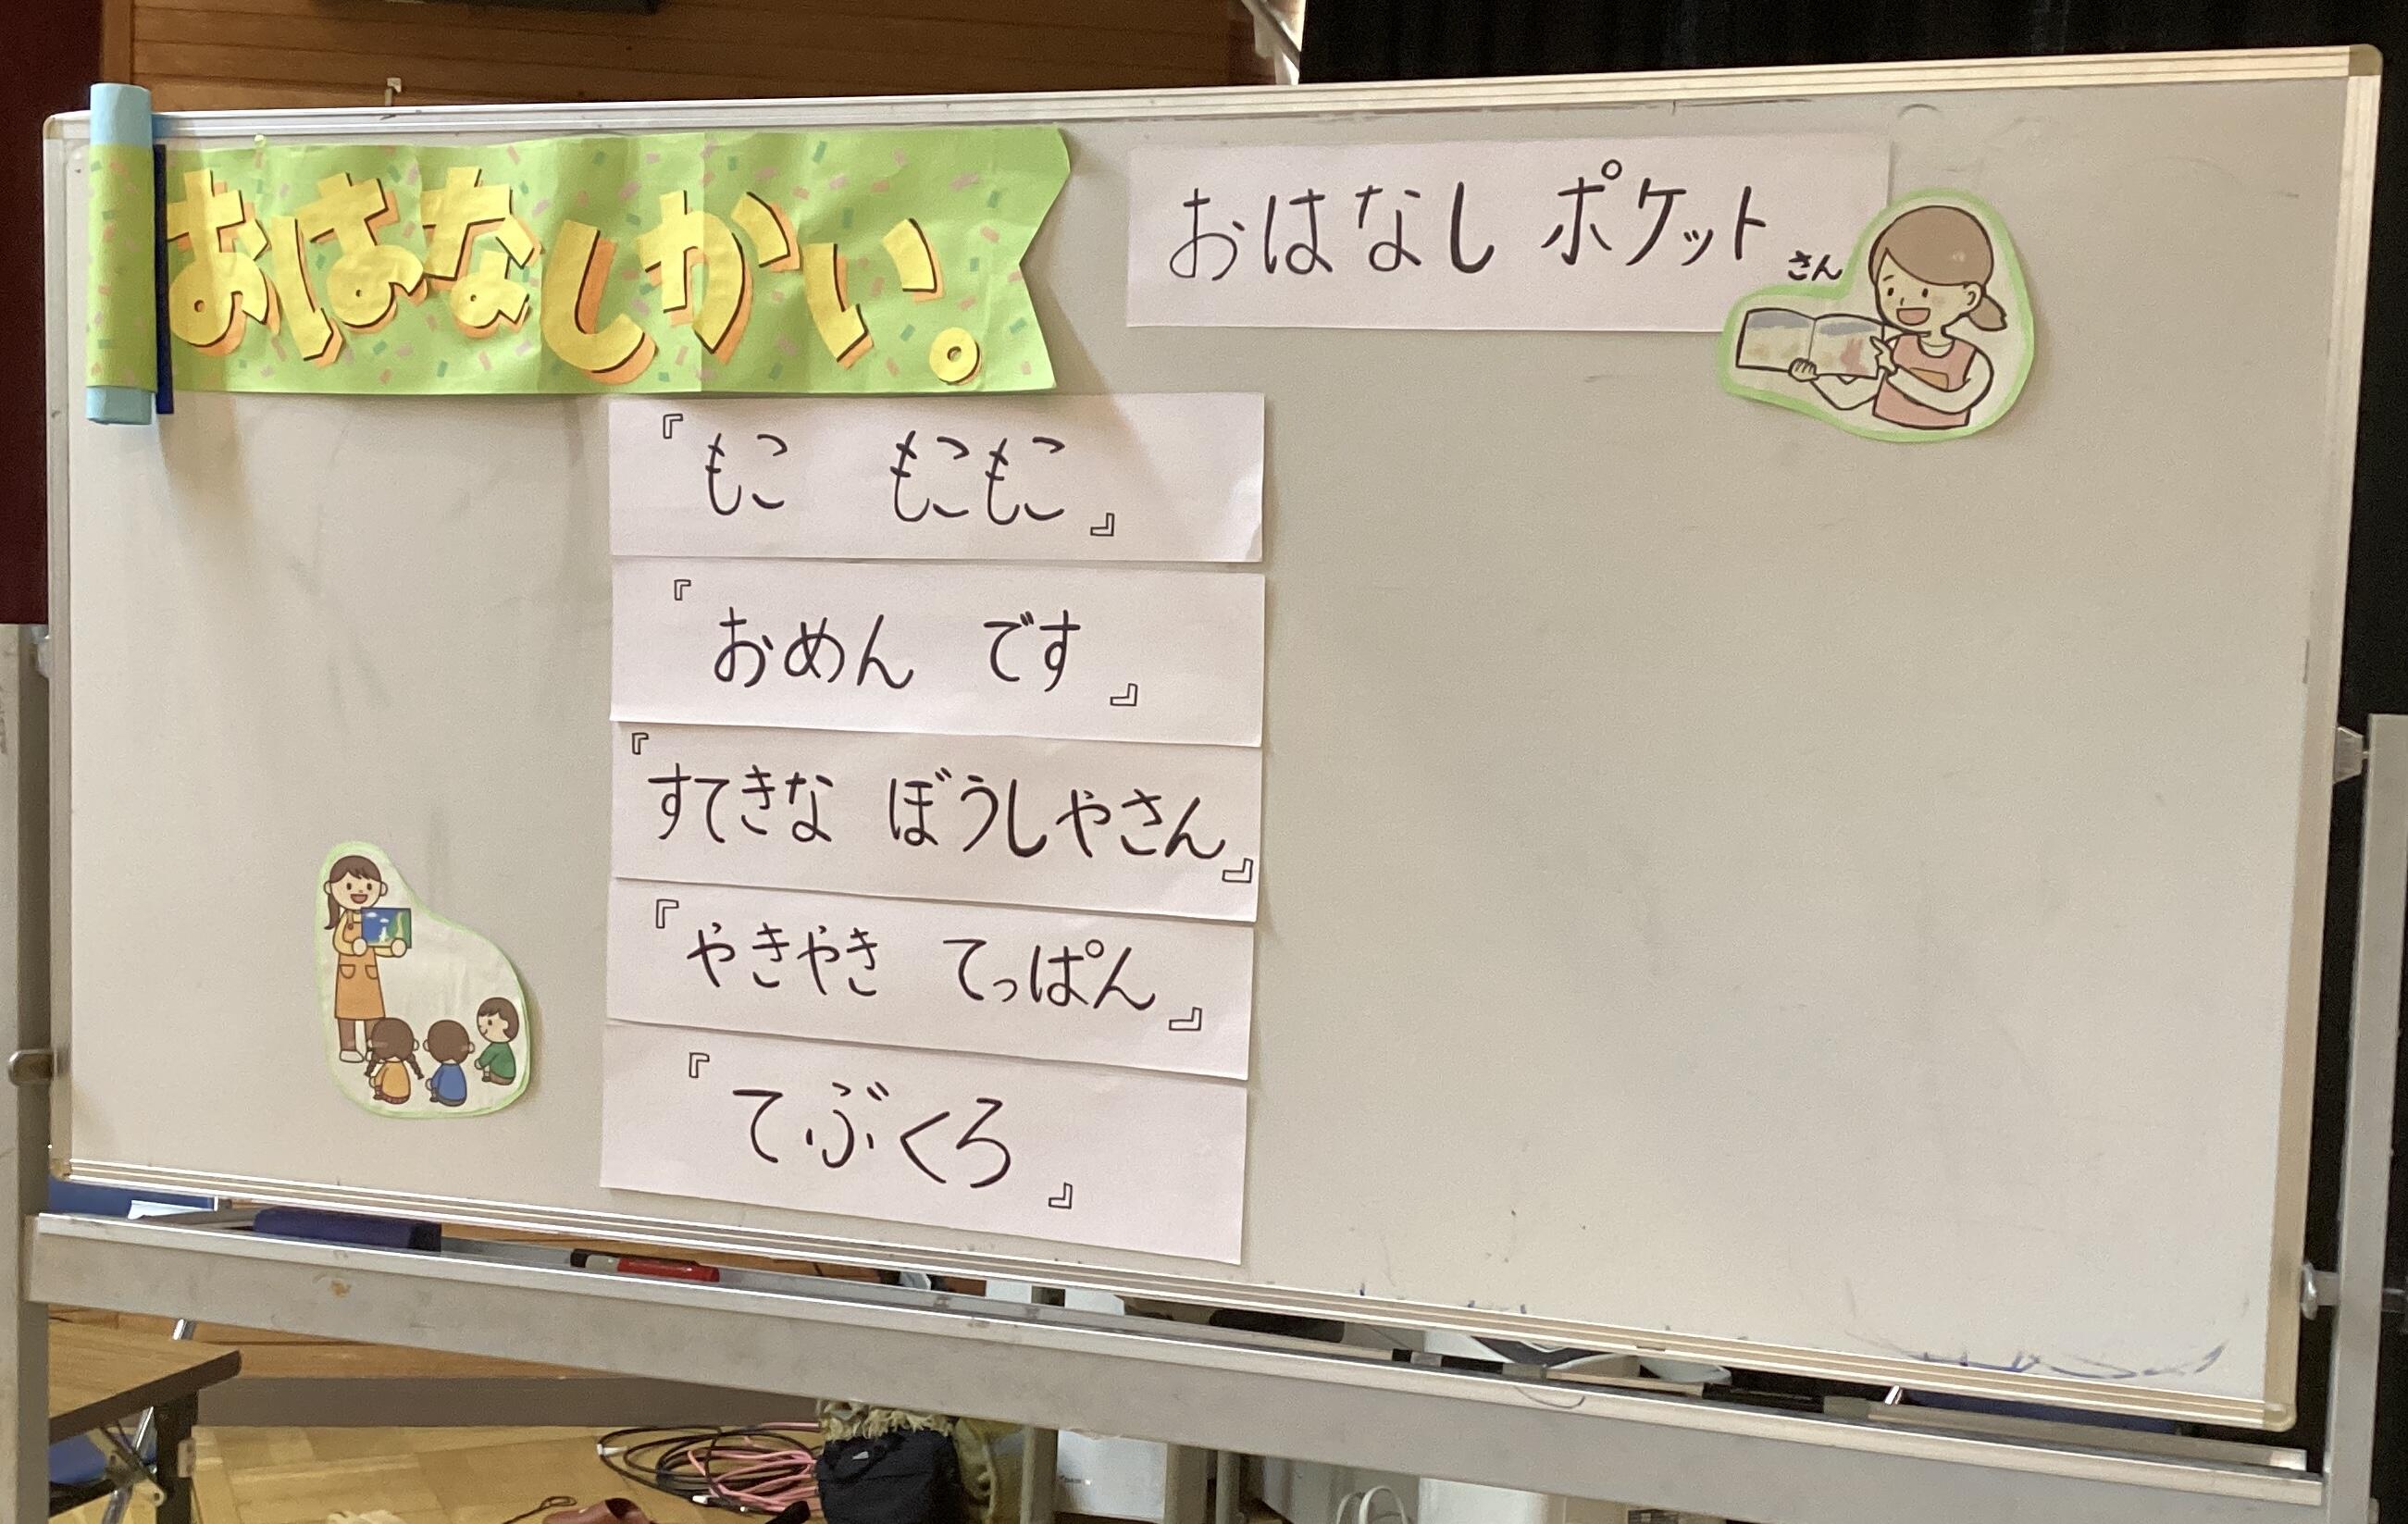 おはなしかい。
おはなし ポケット さん
『もこ もこもこ』
『おめん です』
『すてきな ぼうしやさん』
『やきやき てっぱん』
『てぶくろ』